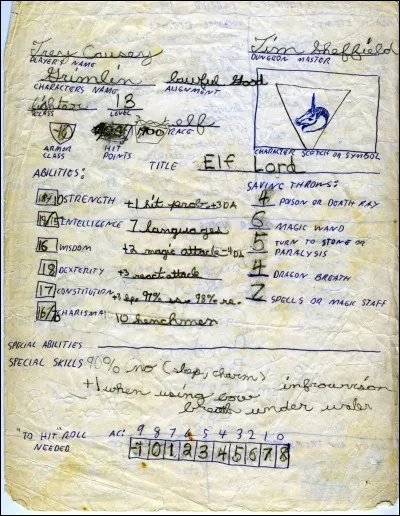 Trex Causey Tim Sheffield
PLAYER'S NAME DUNGEON MASTER
Grimlin lawful Good
CHARACTERS NAME ALIGNMENT
13
CLASS LEVEL
elf
RACE
ARMOR CLASS HIT POINTS
CHARACTER SKETCH OR SYMBOL
TITLE Elf Lord
ABILITIES: SAVING THROWS:
STRENGTH +1 hit prob. +3 DA 4 POISON OR DEATH RAY
INTELLIGENCE 7 languages 6 MAGIC WAND
16 WISDOM +2 magic attack 5 TURN TO STONE OR PARALYSIS
18 DEXTERITY +3 react attack 4 DRAGON BREATH
17 CONSTITUTION 97% 98% 2 SPELLS OR MAGIC STAFF
CHARISMA 10 henchmen
SPECIAL ABILITIES
SPECIAL SKILLS 90% no (slep, charm) infrowvision
+1 when using bow
breath under water
"TO HIT" ROLL NEEDED AC: 9 8 7 6 5 4 3 2 1 0
0 1 2 3 4 5 6 7 8